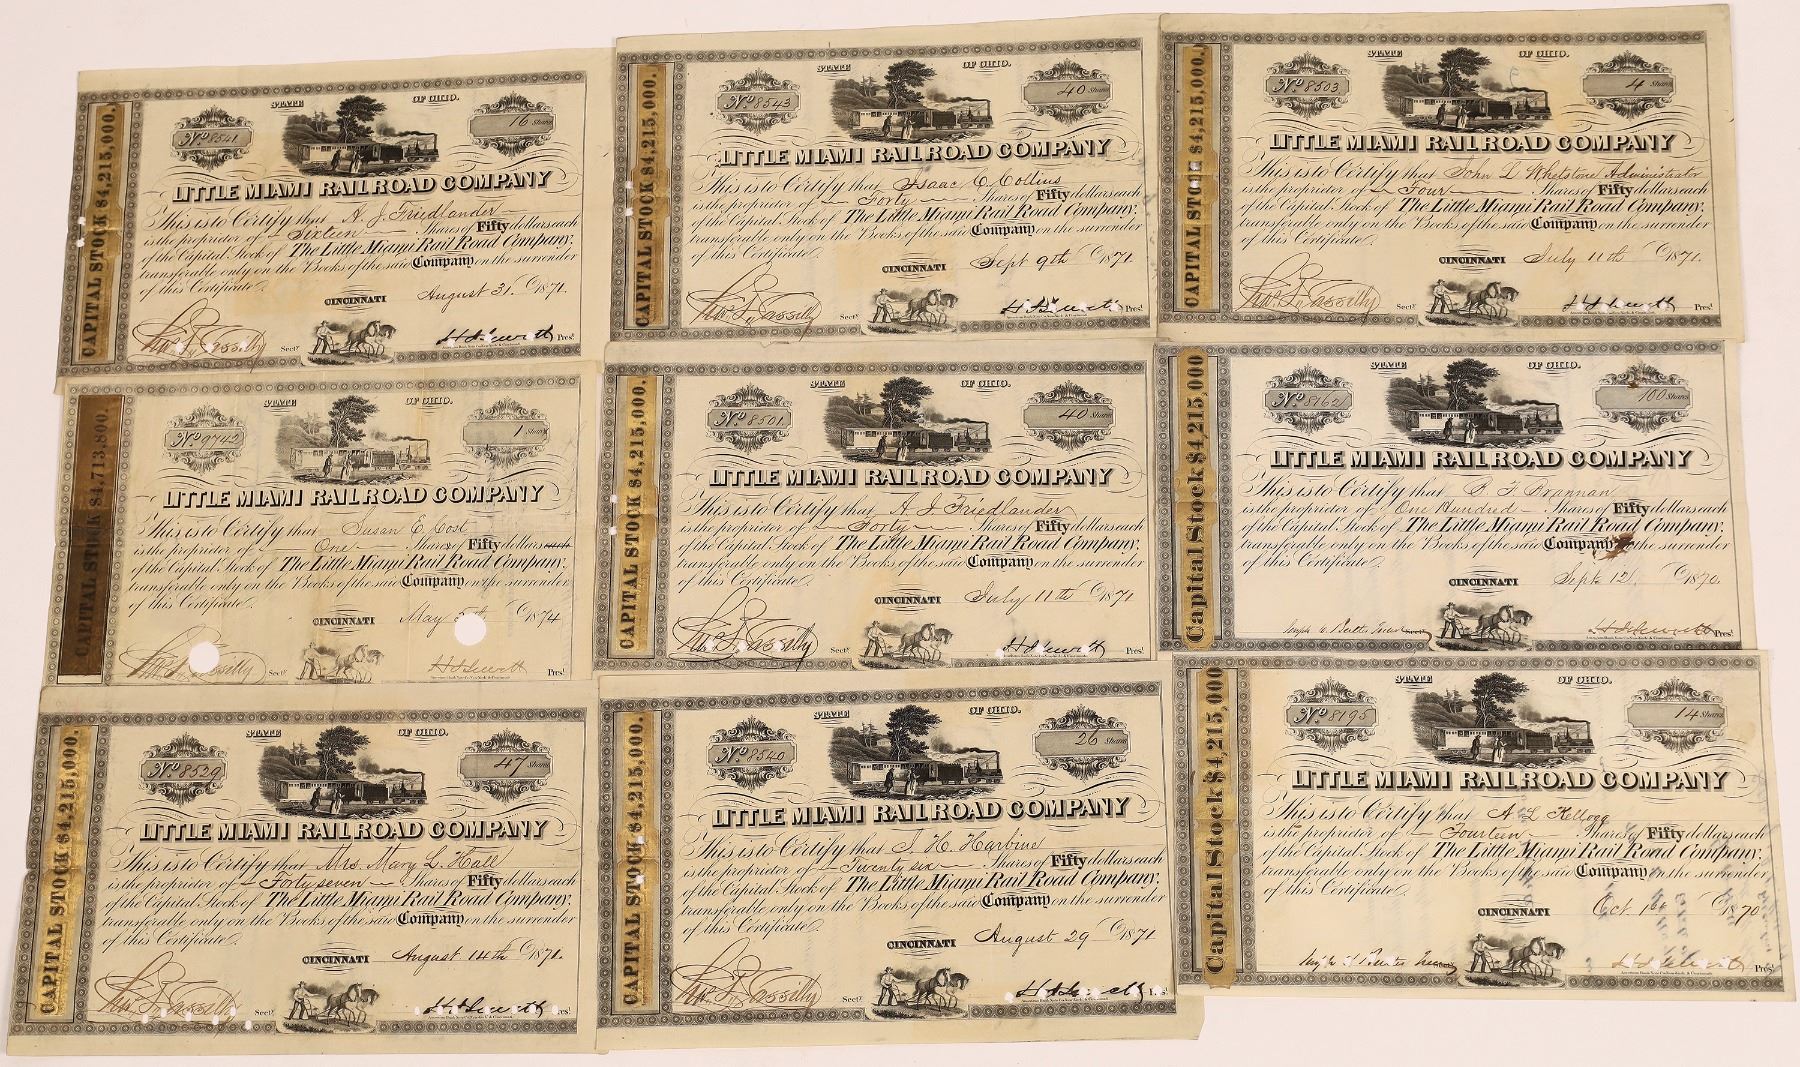 CAPITAL STOCK $4,215,000.
STATE OF OHIO.
No 8541
16 Shares
LITTLE MIAMI RAILROAD COMPANY
This is to Certify that A. J. Friedlander
is the proprietor of Sixteen Shares of Fifty dollars each
of the Capital Stock of The Little Miami Rail Road Company,
transferable only on the Books of the said Company on the surrender
of this Certificate.
CINCINNATI August 31 1871.
Sect.y Pres.t
CAPITAL STOCK $4,215,000.
STATE OF OHIO.
No 8543
40 Shares
LITTLE MIAMI RAILROAD COMPANY
This is to Certify that Isaac C. Collins
is the proprietor of Forty Shares of Fifty dollars each
of the Capital Stock of The Little Miami Rail Road Company,
transferable only on the Books of the said Company on the surrender
of this Certificate.
CINCINNATI Sept 9th 1871
Sect.y Pres.t
CAPITAL STOCK $4,215,000.
STATE OF OHIO.
No 8503
4 Shares
LITTLE MIAMI RAILROAD COMPANY
This is to Certify that John L Whetstone Administrator
is the proprietor of Four Shares of Fifty dollars each
of the Capital Stock of The Little Miami Rail Road Company,
transferable only on the Books of the said Company on the surrender
of this Certificate.
CINCINNATI July 11th 1871.
Sect.y Pres.t
CAPITAL STOCK $4,713,800.
STATE OF OHIO.
No 9742
1 Shares
LITTLE MIAMI RAILROAD COMPANY
This is to Certify that Susan E. Cost
is the proprietor of One Shares of Fifty dollars each
of the Capital Stock of The Little Miami Rail Road Company,
transferable only on the Books of the said Company on the surrender
of this Certificate.
CINCINNATI May 5th 1874
Sect.y Pres.t
CAPITAL STOCK $4,215,000.
STATE OF OHIO.
No 8501
40 Shares
LITTLE MIAMI RAILROAD COMPANY
This is to Certify that A J Friedlander
is the proprietor of Forty Shares of Fifty dollars each
of the Capital Stock of The Little Miami Rail Road Company,
transferable only on the Books of the said Company on the surrender
of this Certificate.
CINCINNATI July 11th 1871
Sect.y Pres.t
Capital Stock $4,215,000
STATE OF OHIO.
No 8162
100 Shares
LITTLE MIAMI RAILROAD COMPANY
This is to Certify that B F Brannan
is the proprietor of One Hundred Shares of Fifty dollars each
of the Capital Stock of The Little Miami Rail Road Company,
transferable only on the Books of the said Company on the surrender
of this Certificate.
CINCINNATI Sept. 12 1870.
Pres.t
CAPITAL STOCK $4,215,000.
STATE OF OHIO.
No 8529
47 Shares
LITTLE MIAMI RAILROAD COMPANY
This is to Certify that Mrs. Mary L. Hall
is the proprietor of Forty seven Shares of Fifty dollars each
of the Capital Stock of The Little Miami Rail Road Company,
transferable only on the Books of the said Company on the surrender
of this Certificate.
CINCINNATI August 14th 1871.
Sect.y Pres.t
CAPITAL STOCK $4,215,000.
STATE OF OHIO.
No 8540
26 Shares
LITTLE MIAMI RAILROAD COMPANY
This is to Certify that J. H. Harbine
is the proprietor of Twenty six Shares of Fifty dollars each
of the Capital Stock of The Little Miami Rail Road Company,
transferable only on the Books of the said Company on the surrender
of this Certificate.
CINCINNATI August 29 1871
Sect.y Pres.t
Capital Stock $4,215,000
STATE OF OHIO.
No 8195
14 Shares
LITTLE MIAMI RAILROAD COMPANY
This is to Certify that A L Kellogg
is the proprietor of Fourteen Shares of Fifty dollars each
of the Capital Stock of The Little Miami Rail Road Company,
transferable only on the Books of the said Company on the surrender
of this Certificate.
CINCINNATI Oct. 1st 1870
Pres.t